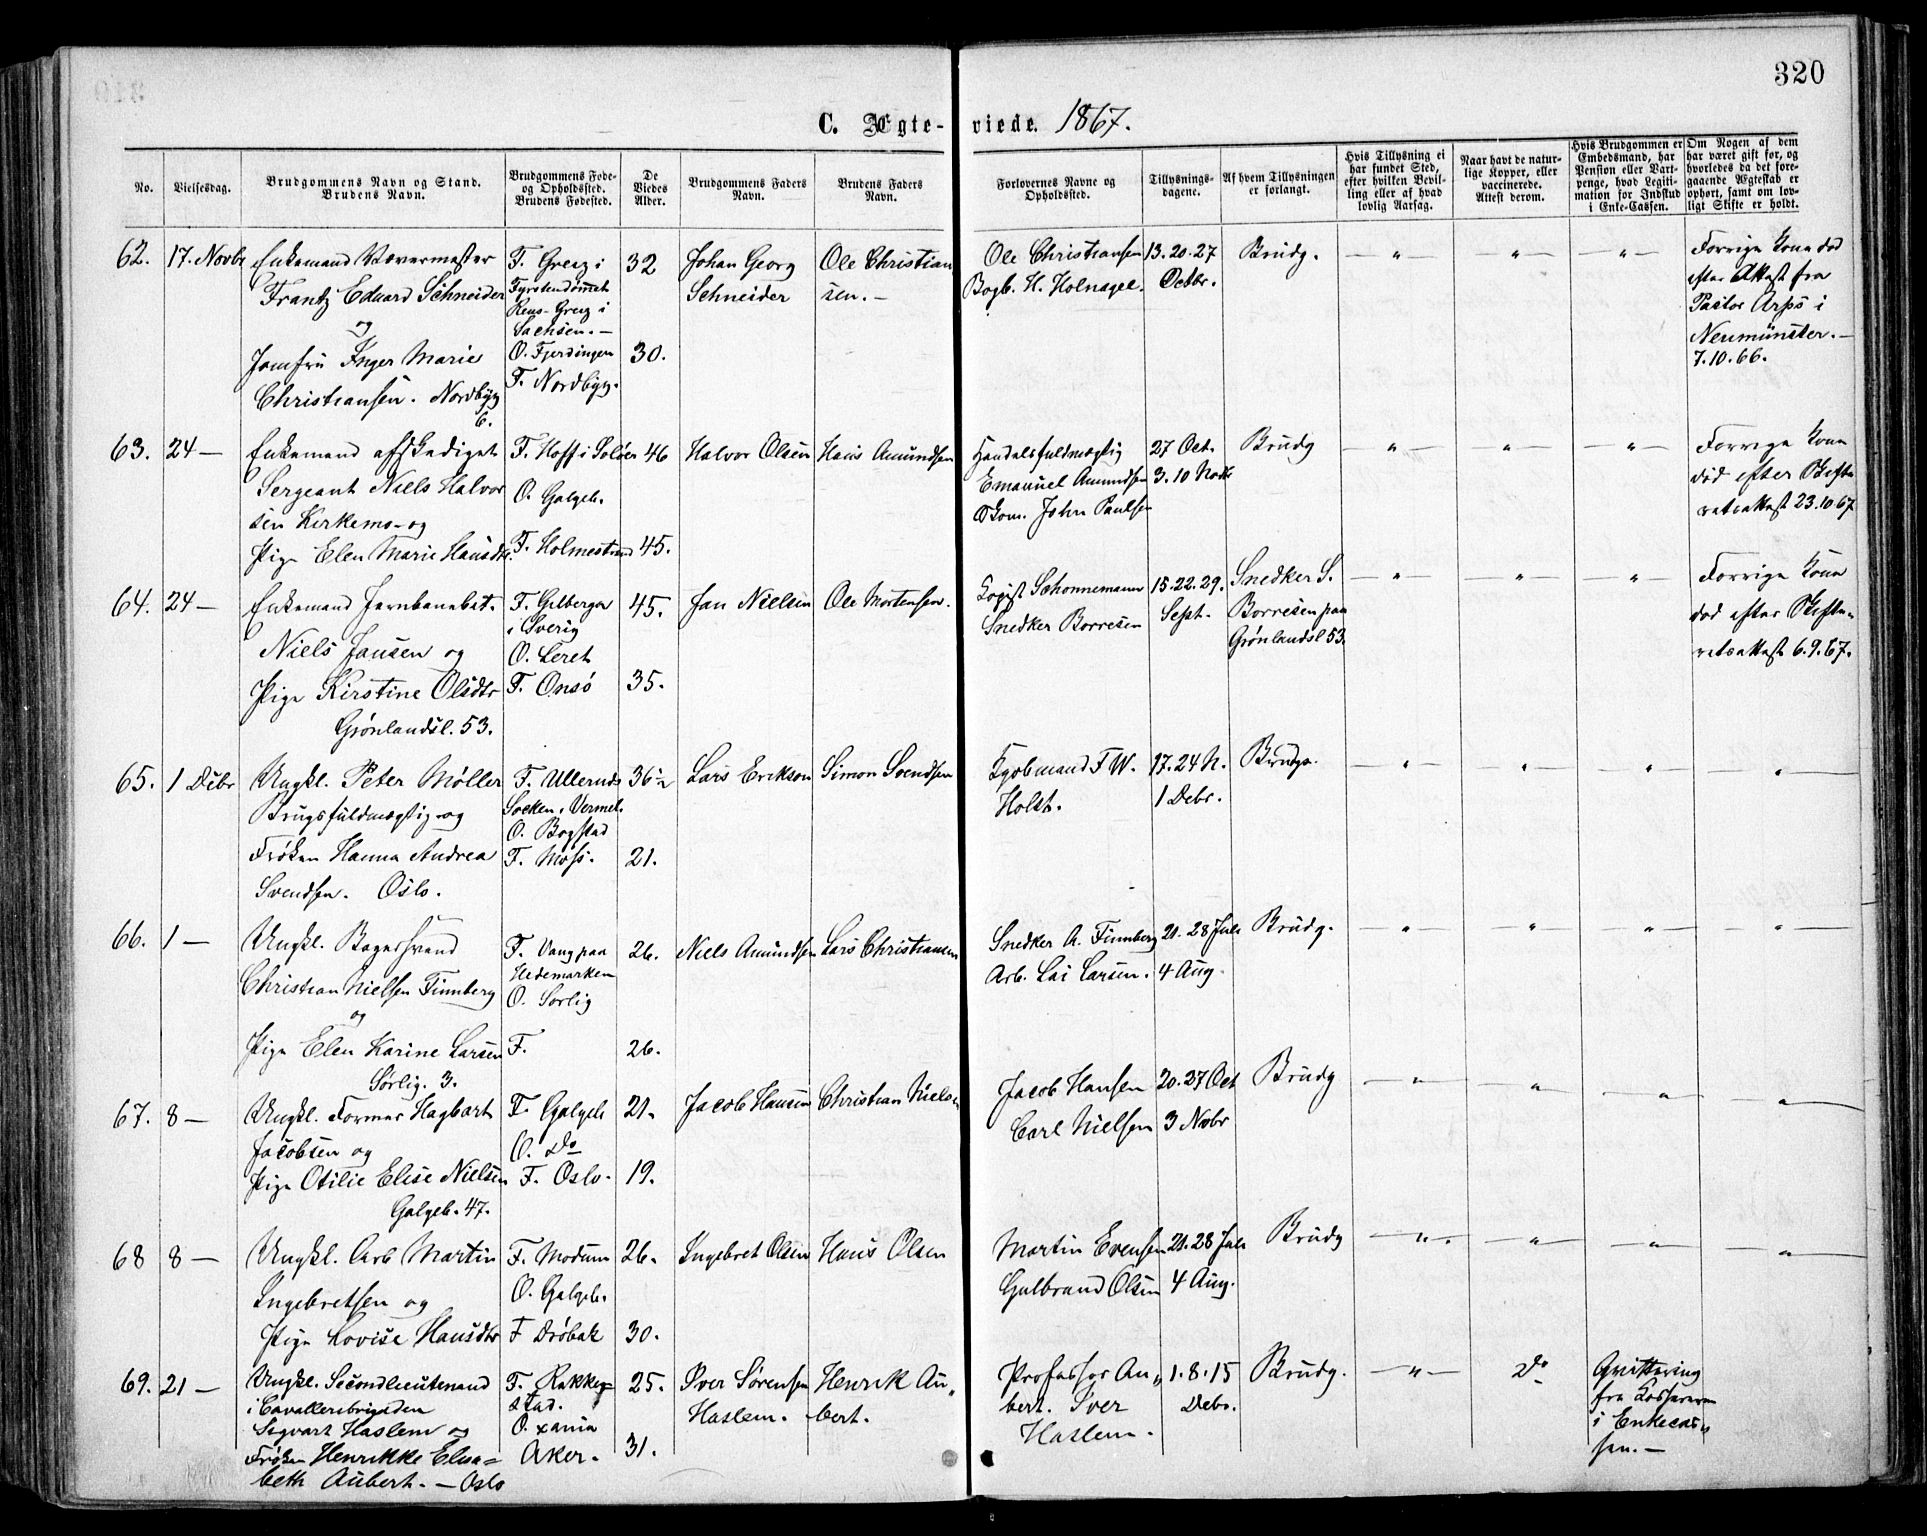 320
C. Ægte-viede. 1867.
No.
Vielsesdag.
Brudgommens Navn og Stand.
Brudens Navn.
Brudgommens Føde-
og Opholdssted.
Brudens Fødested.
De
Viedes
Alder.
Brudgommens Faders
Navn.
Brudens Faders
Navn.
Forlovernes Navne og
Opholdssted.
Tillysnings-
dagene.
Af hvem Tillysningen
er forlangt.
Hvis Tillysning ei
har fundet Sted,
efter hvilken Bevil-
ling eller af hvad
lovlig Aarsag.
Naar havt de natur-
lige Kopper, eller
vaccinerede.
Attest derom.
Hvis Brudgommen er
Embedsmand, har
Pension eller Vart-
penge, hvad Legiti-
mation for Indskud
i Enke-Cassen.
Om Nogen af dem
har været gift før, og
hvorledes da det fore-
gaaende Ægteskab er
ophørt, samt om lov-
ligt Skifte er holdt.
62. 17. Novbr
Enkemand Vævermester
Frantz Eduard Schneider
og
Jomfru Inger Marie
Christiansen. Nordbyg
6.
F. Greiz i
Fyrstendømet
Reus-Greiz i
Sachsen.—
O. Fjerdingen
F. Nordbyg.
32
30.
Johan Georg
Schneider
Ole Christian
sen.—
Ole Christiansen
Bogb. H. Holnagel.
13. 20. 27
Octbr.
Brudg.
— " —
"
— " —
Forrige Kone død
efter Attest fra
Pastor Arps i
Neumünster.—
7.10.66.
63. 24 —
Enkemand afskediget
Sergeant Niels Halvor
sen Kirkemo— og
Pige Elen Marie Hansdtr.
F. Hoff i Solør
O. Galgeb.
F. Holmestrand
46
45.
Halvor Olsen
Hans Amundsen
Handelsfuldmægtig
Emanuel Amundsen
Skom. John Paulsen
27 Oct.
3. 10 Novbr
Brudg
— " —
"
— " —
Forrige Kone
død efter Skifte
retsattest 23.10.67
64. 24 —
Enkemand Jernbanebet.
Niels Jansen og
Pige Kirstine Olsdtr
Grønlandsl. 53.
F. Gilberga
i Sverig
O. Leret
F. Onsø
45.
35.
Jan Nielsen
Ole Mortensen.
Logist Schønnemann
Snedker Borresen
15. 22. 29.
Sept.
Snedker S.
Borresen paa
Grønlandsl 53.
— " —
"
"
Forrige Kone
død efter Skifte-
retsattest 6.9.67.
65. 1 Debr
Ungkl. Peter Møller
Brugsfuldmægtig og
Frøken Hanna Andrea
Svendsen. Oslo.
F. Ullerud
Socken, Vermel.
O. Bogstad
F. Moss.
36 ½
21.
Lars Erikson
Simon Svendsen
Kjøbmand F W.
Holst.
17. 24 N.
1 Debr.
Brudg.
— " —
"
"
"
66. 1 —
Ungkl. Bagersvend
Christian Nielsen Finnberg
og
Pige Elen Karine Larsen
Sørlig. 3.
F. Vang paa
Hedemarken
O. Sørlig
F.
26.
26.
Niels Amundsen
Lars Christiansen
Snedker A. Finnberg
Arb. Lai Larsen.
21. 28 Juli
4 Aug.
Brudg.
— " —
"
"
"
67. 8 —
Ungkl. Former Hagbart
Jacobsen og
Pige Otilie Elise Nielsen
Galgeb. 47.
F. Galgeb
O. Do
F. Oslo.
21.
19.
Jacob Hansen
Christian Nielsen
Jacob Hansen
Carl Nielsen
20. 27 Oct
3 Nvbr
Brudg
— " —
"
— " —
"
68 8 —
Ungkl. Arb Martin
Ingebretsen og
Pige Lovise Hansdtr
F. Modum
O. Galgeb.
F Drøbak
26.
30.
Ingebret Olsen
Hans Olsen
Martin Evensen
Gulbrand Olsen
21. 28 Juli
4 Aug.
Brudg
— " —
"
"
"
69. 21 —
Ungkl. Secondlieutenand
i Cavalleribrigaden
Sigvart Haslem og
Frøken Henrikke Elisa-
beth Aubert.— Oslo
F. Rakke-
stad.
O. xania
Aker.
25.
31.
Iver Sørensen
Haslem.
Henrik Au„
bert.
Professor Au„
bert. Iver
Haslem.
1. 8. 15
Debr.
Brudg.
— " —
Do
Qvittering
fra Kassereren
i Enkecas
sen.—